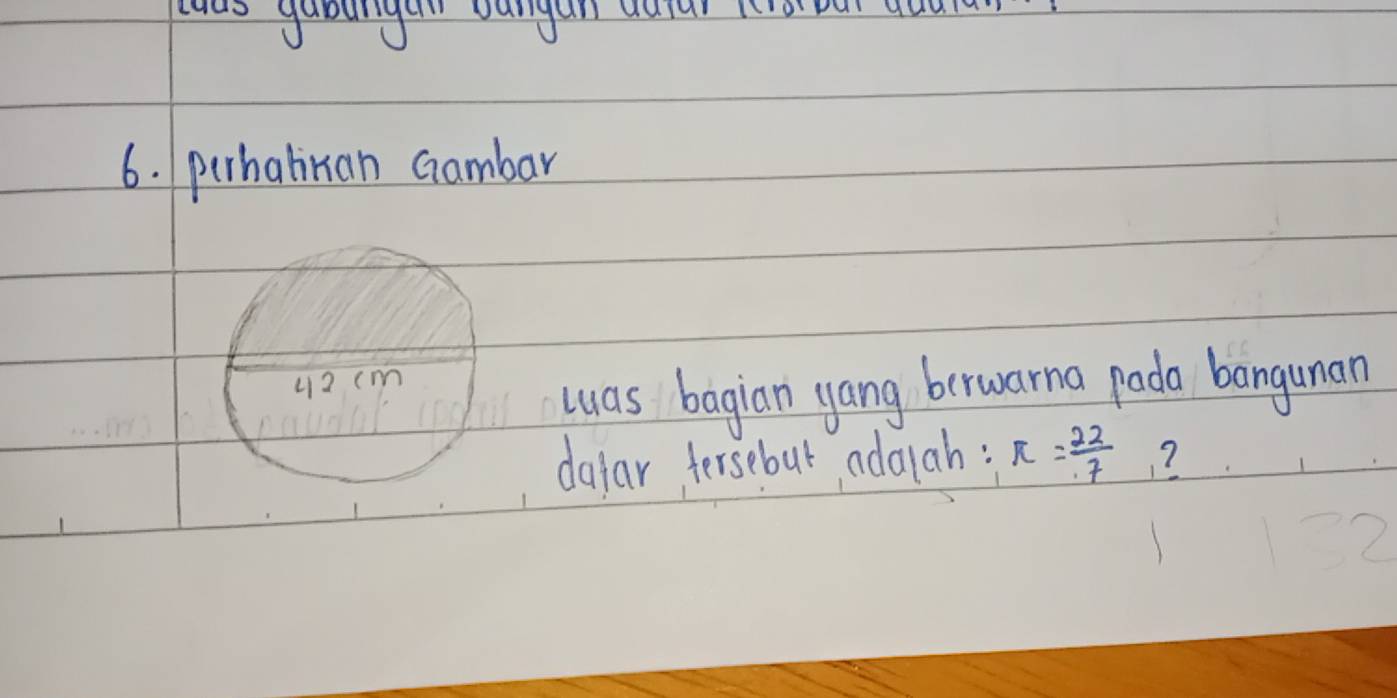 luas gabungan bangun datar tersebut adalah
6. perhatikan Gambar
42 cm
luas bagian yang berwarna pada bangunan
datar tersebut adalah : π = 22/7 ?
132